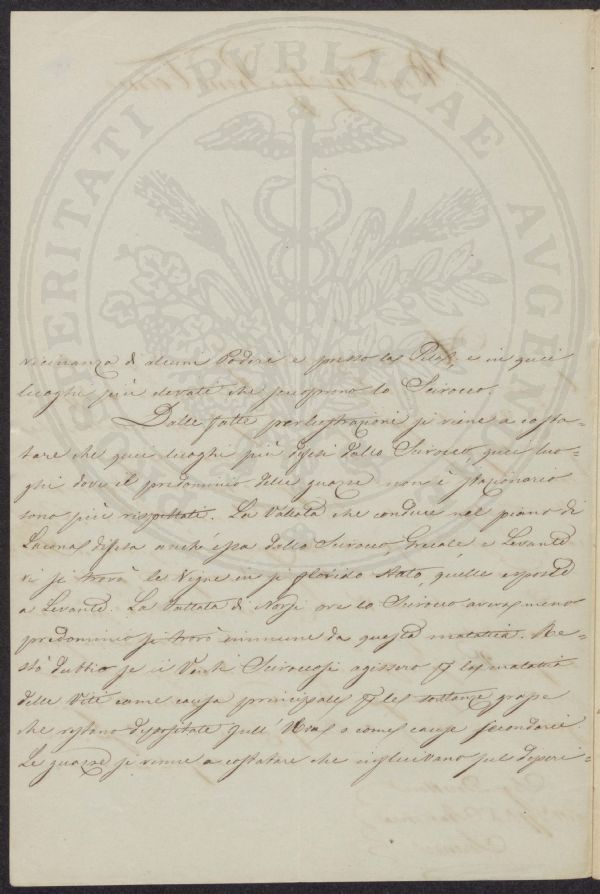 PROSPERITATI PVBLICAE AVGENDAE
vicinanza di alcuni Podere e presso la e in quei
luoghi più elevati che scuoprono lo Scirocco.
Dalle fatte perlustrazioni si viene a costa-
tare che quei luoghi più difesi dallo Scirocco, quei luo-
ghi dove il predominio delle guazze non è stazionario
sono più rispettati. La Vallata che conduce nel piano di
Lacona difesa anch'essa dallo Scirocco, Grecale e Levante
vi si trovò le Vigne in sì florido stato, quelle esposte
a Levante. La Vallata di Norsi ove lo Scirocco avvi meno
predominio si trovò immune da questa malatia. Re-
stò dubbio se i Venti Sciroccosi agissero p la malatia
delle Vite come causa principale p le sostanze grasse
che restano depositate sull' Uva o come cause secondarie
Le guazze si venne a costatare che influivano sul deperi-